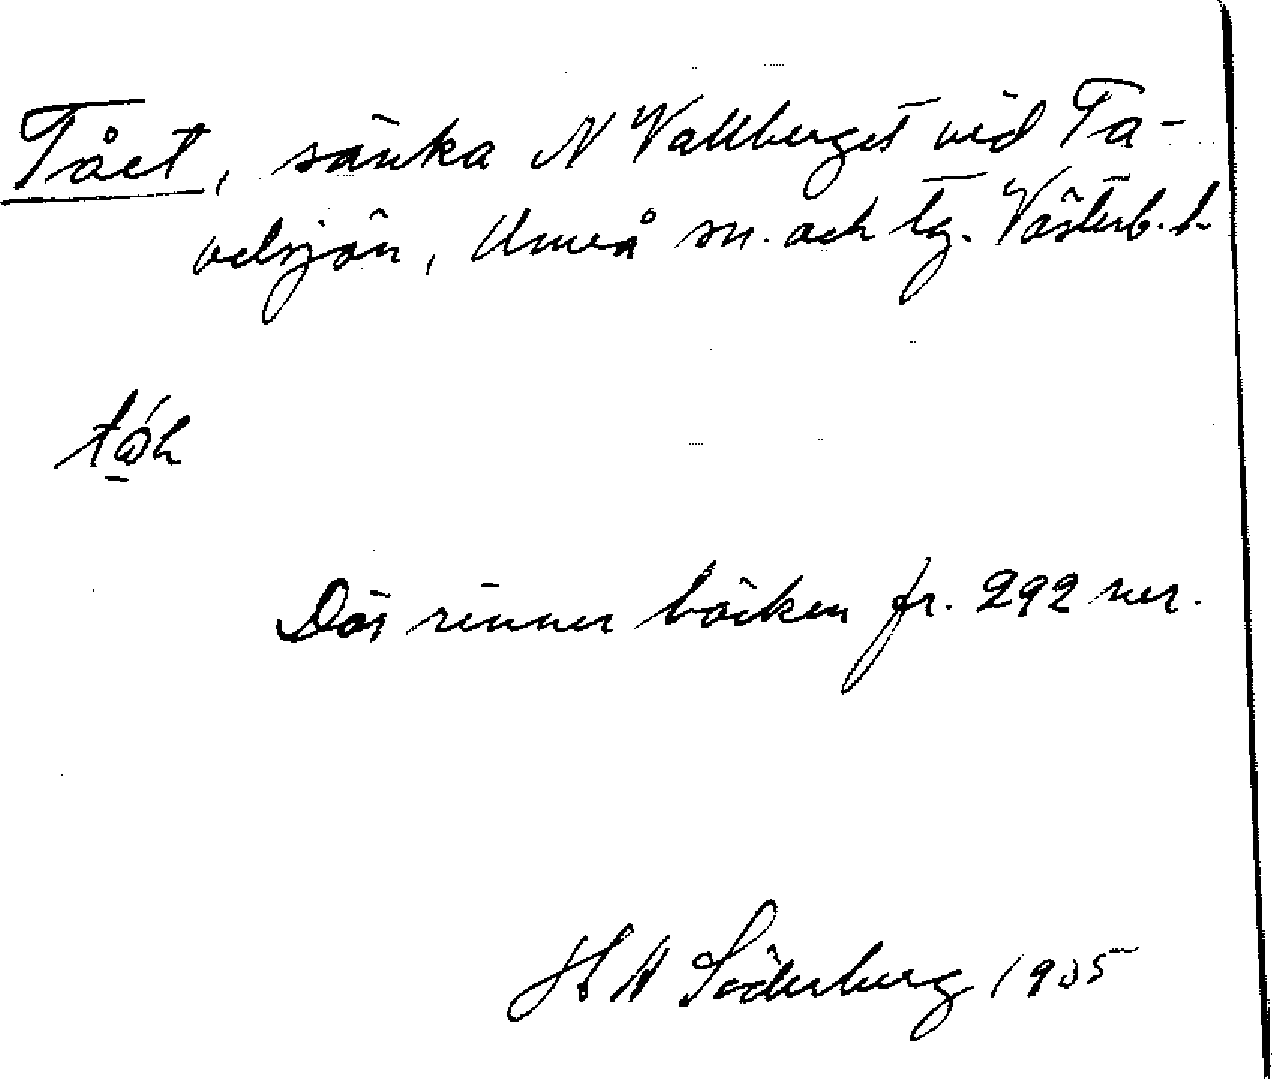 Tået, sänka N Vallberget vid Ta-
velsjön, Umeå sn. och tg. Västerb. l.
Där rinner bäcken fr. 292 ner.
H A Söderberg 1905